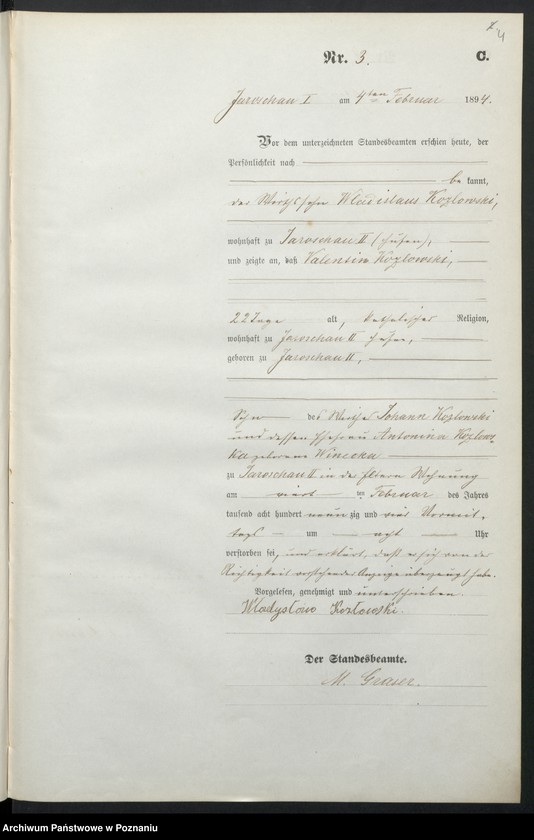 4
Nr. 3. C.
Jaroschau I am 4ten Februar 1894.
Vor dem unterzeichneten Standesbeamten erschien heute, der
Persönlichkeit nach
bekannt,
der Wirthssohn Wladislaus Kozlowski,
wohnhaft zu Jaroschau II (Hufen),
und zeigte an, daß Valentin Kozlowski,
22 Tage alt, katholischer Religion,
wohnhaft zu Jaroschau II Hufen,
geboren zu Jaroschau II,
Sohn des Wirths Johann Kozlowski
und dessen Ehefrau Antonina Kozlows
ka geborene Wincoka
zu Jaroschau II in der Eltern Wohnung
am viert ten Februar des Jahres
tausend acht hundert neunzig und vier Vormit-
tags um acht Uhr
verstorben sei, und erklärt, daß er sich von der
Richtigkeit vorstehender Anzeige überzeugt habe.
Vorgelesen, genehmigt und unterschrieben
Władysław Kozłowski.
Der Standesbeamte.
M. Graser.
Archiwum Państwowe w Poznaniu